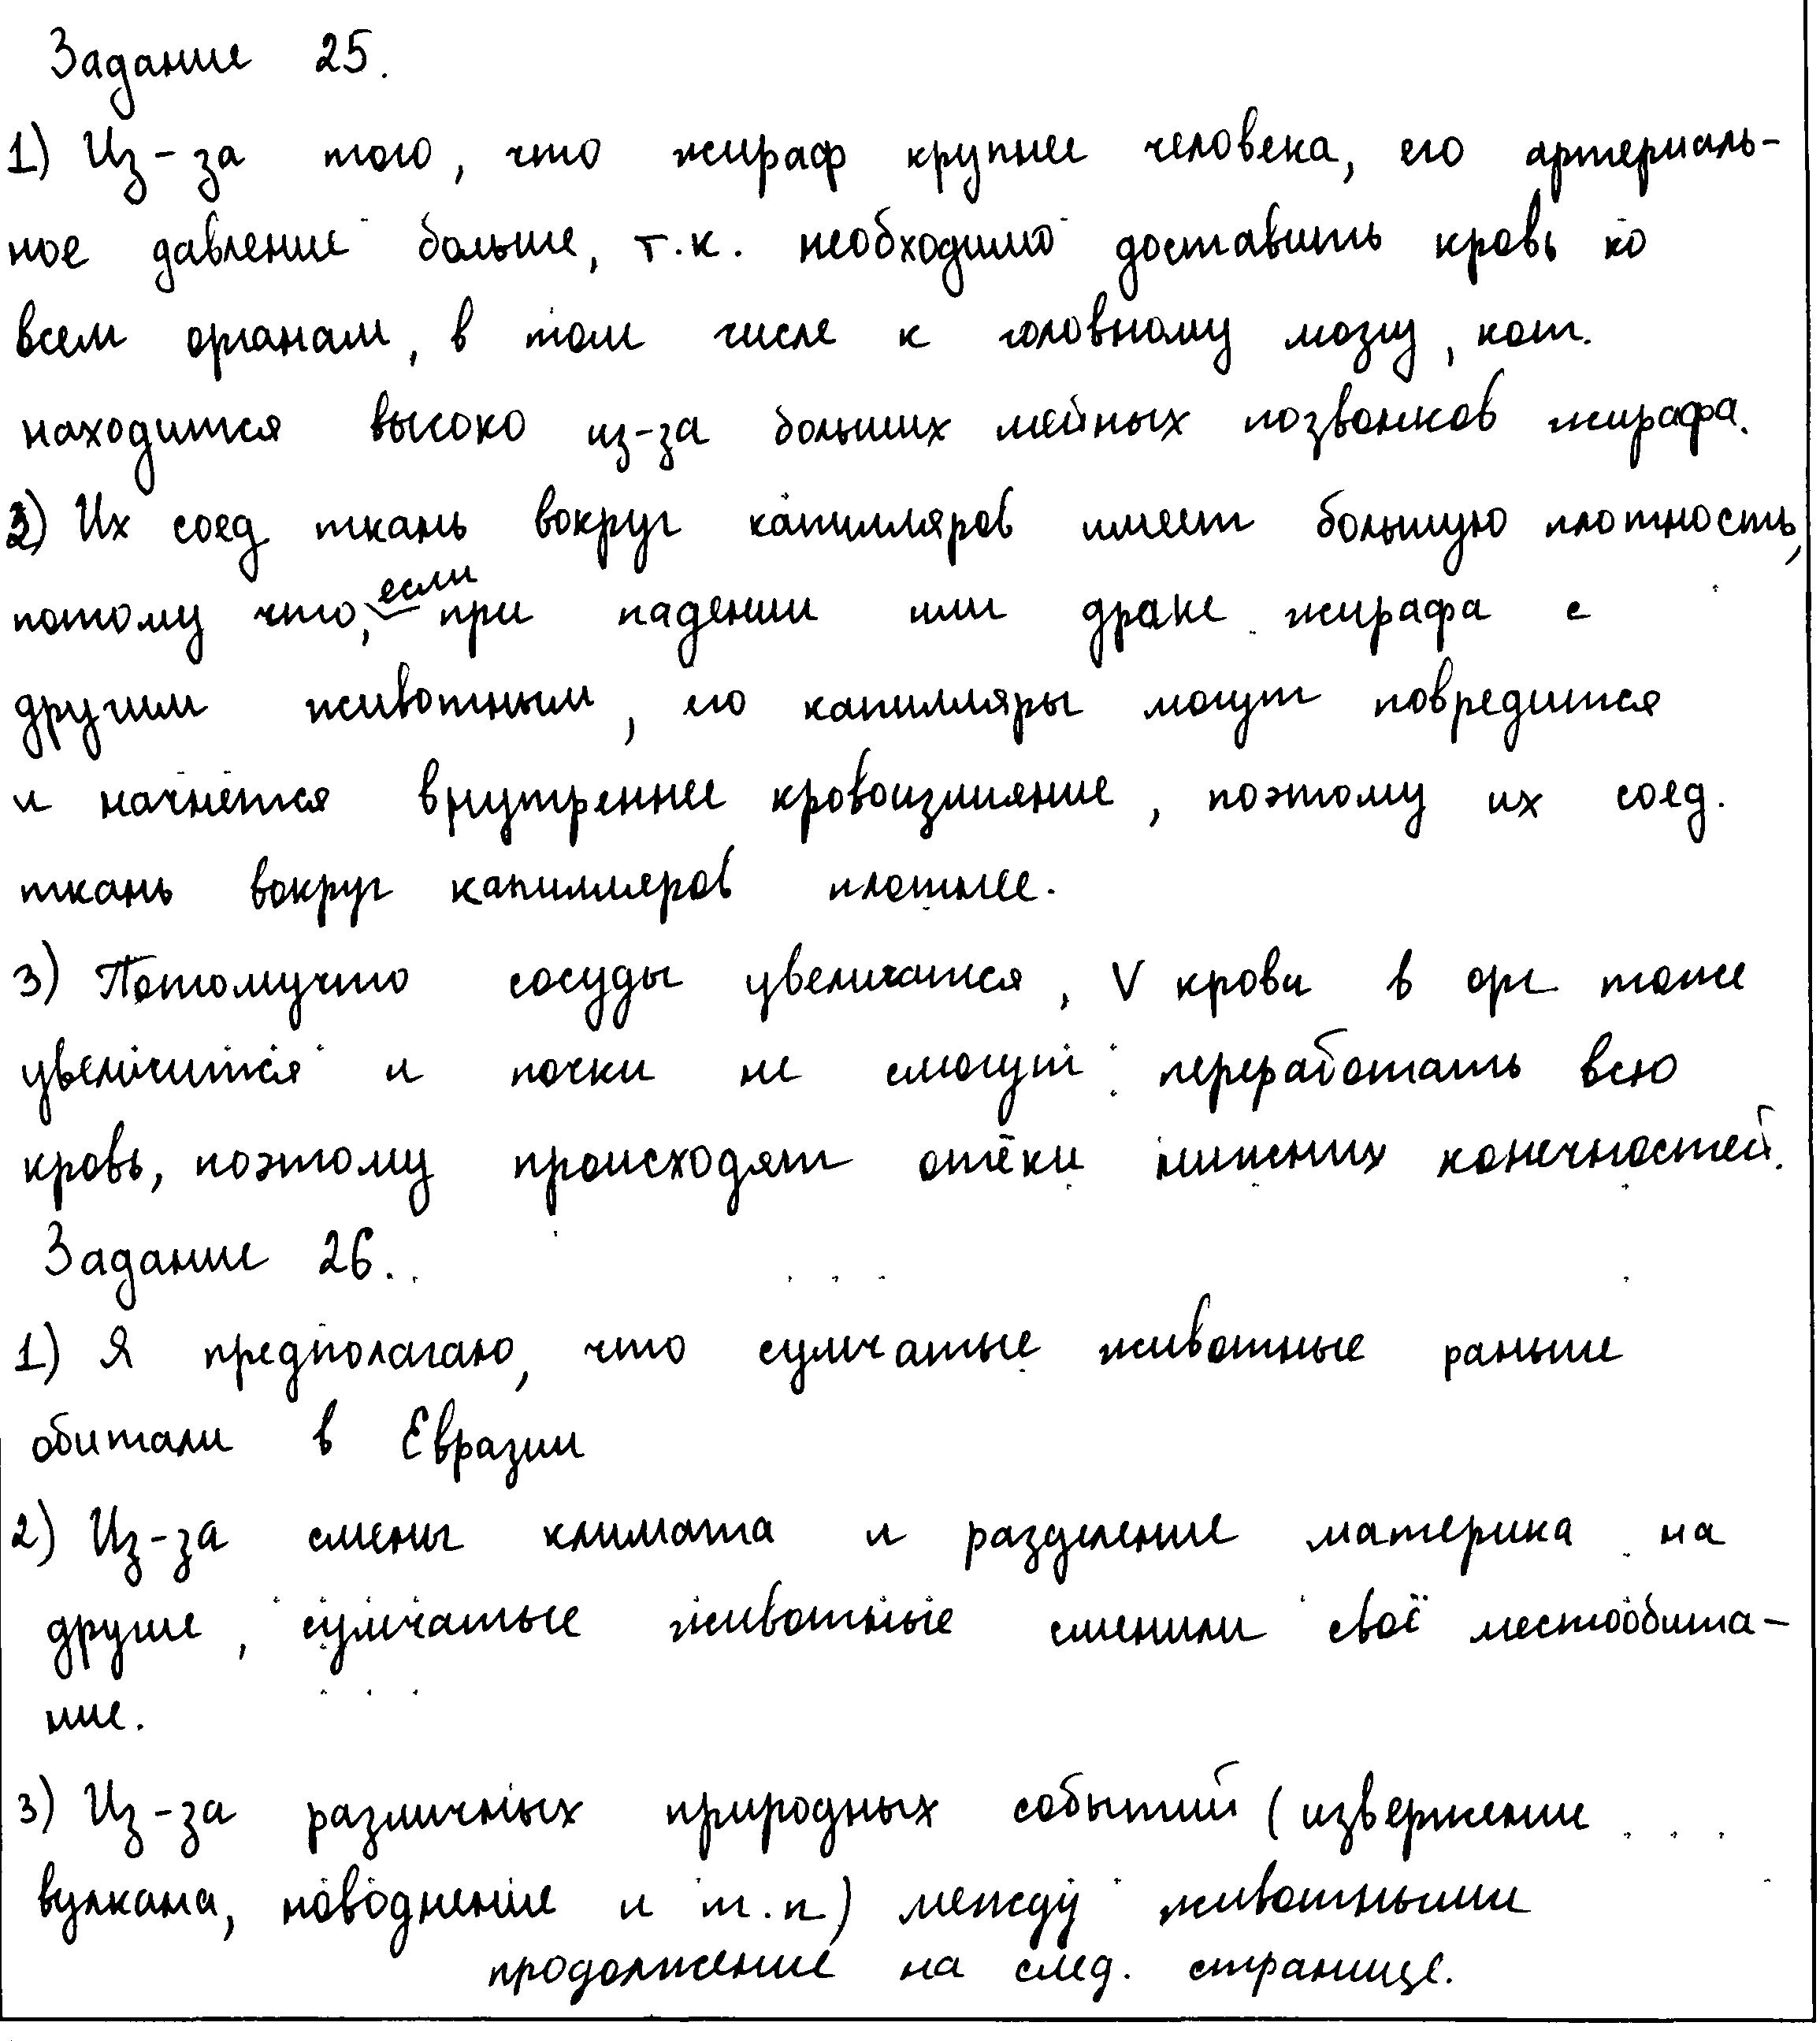 Задание 25.
1) Из-за того, что жираф крупнее человека, его артериаль-
ное давление больше, т.к. необходимо доставить кровь ко
всем органам, в том числе к головному мозгу, кот.
находится высоко из-за больших шейных позвонков жирафа.
2) Их соед ткань вокруг капилляров имеет большую плотность,
потому что, если при падении или драке жирафа с
другим животным, его капилляры могут повредится
и начнётся внутреннее кровоизлияние, поэтому их соед.
ткань вокруг капилляров плотнее.
3) Потомучто сосуды увеличатся, V крови в орг. тоже
увеличится и почки не смогут переработать всю
кровь, поэтому происходят отёки нижних конечностей.
Задание 26.
1) Я предполагаю, что сумчатые животные раньше
обитали в Евразии
2) Из-за смены климата и разделение материка на
другие, сумчатые животные сменили своё местообита-
ние.
3) Из-за различных природных событий (извержение
вулкана, новоднение и т.п) между животными
продолжение на след. странице.